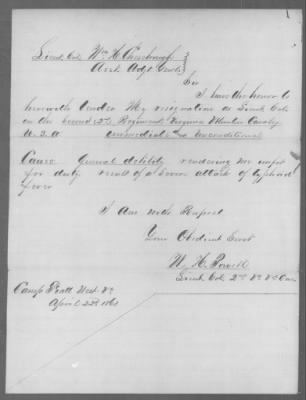 Lieut Col Wm H. Chesebrough
Asst Adjt Genl
Sir
I have the honor to
herewith tender My resignation as Lieut Col
on the Second 2d Regiment Virginia Volunteer Cavalry
U.S.A immediate and Unconditional
Cause General debility rendering me unfit
for duty result of a severe attack of typhoid
fever
I Am with Respect
Your Obedient Servt
W. H. Powell
Lieut Col 2nd Va V Cav
Camp Piatt West Va
April 22d 186